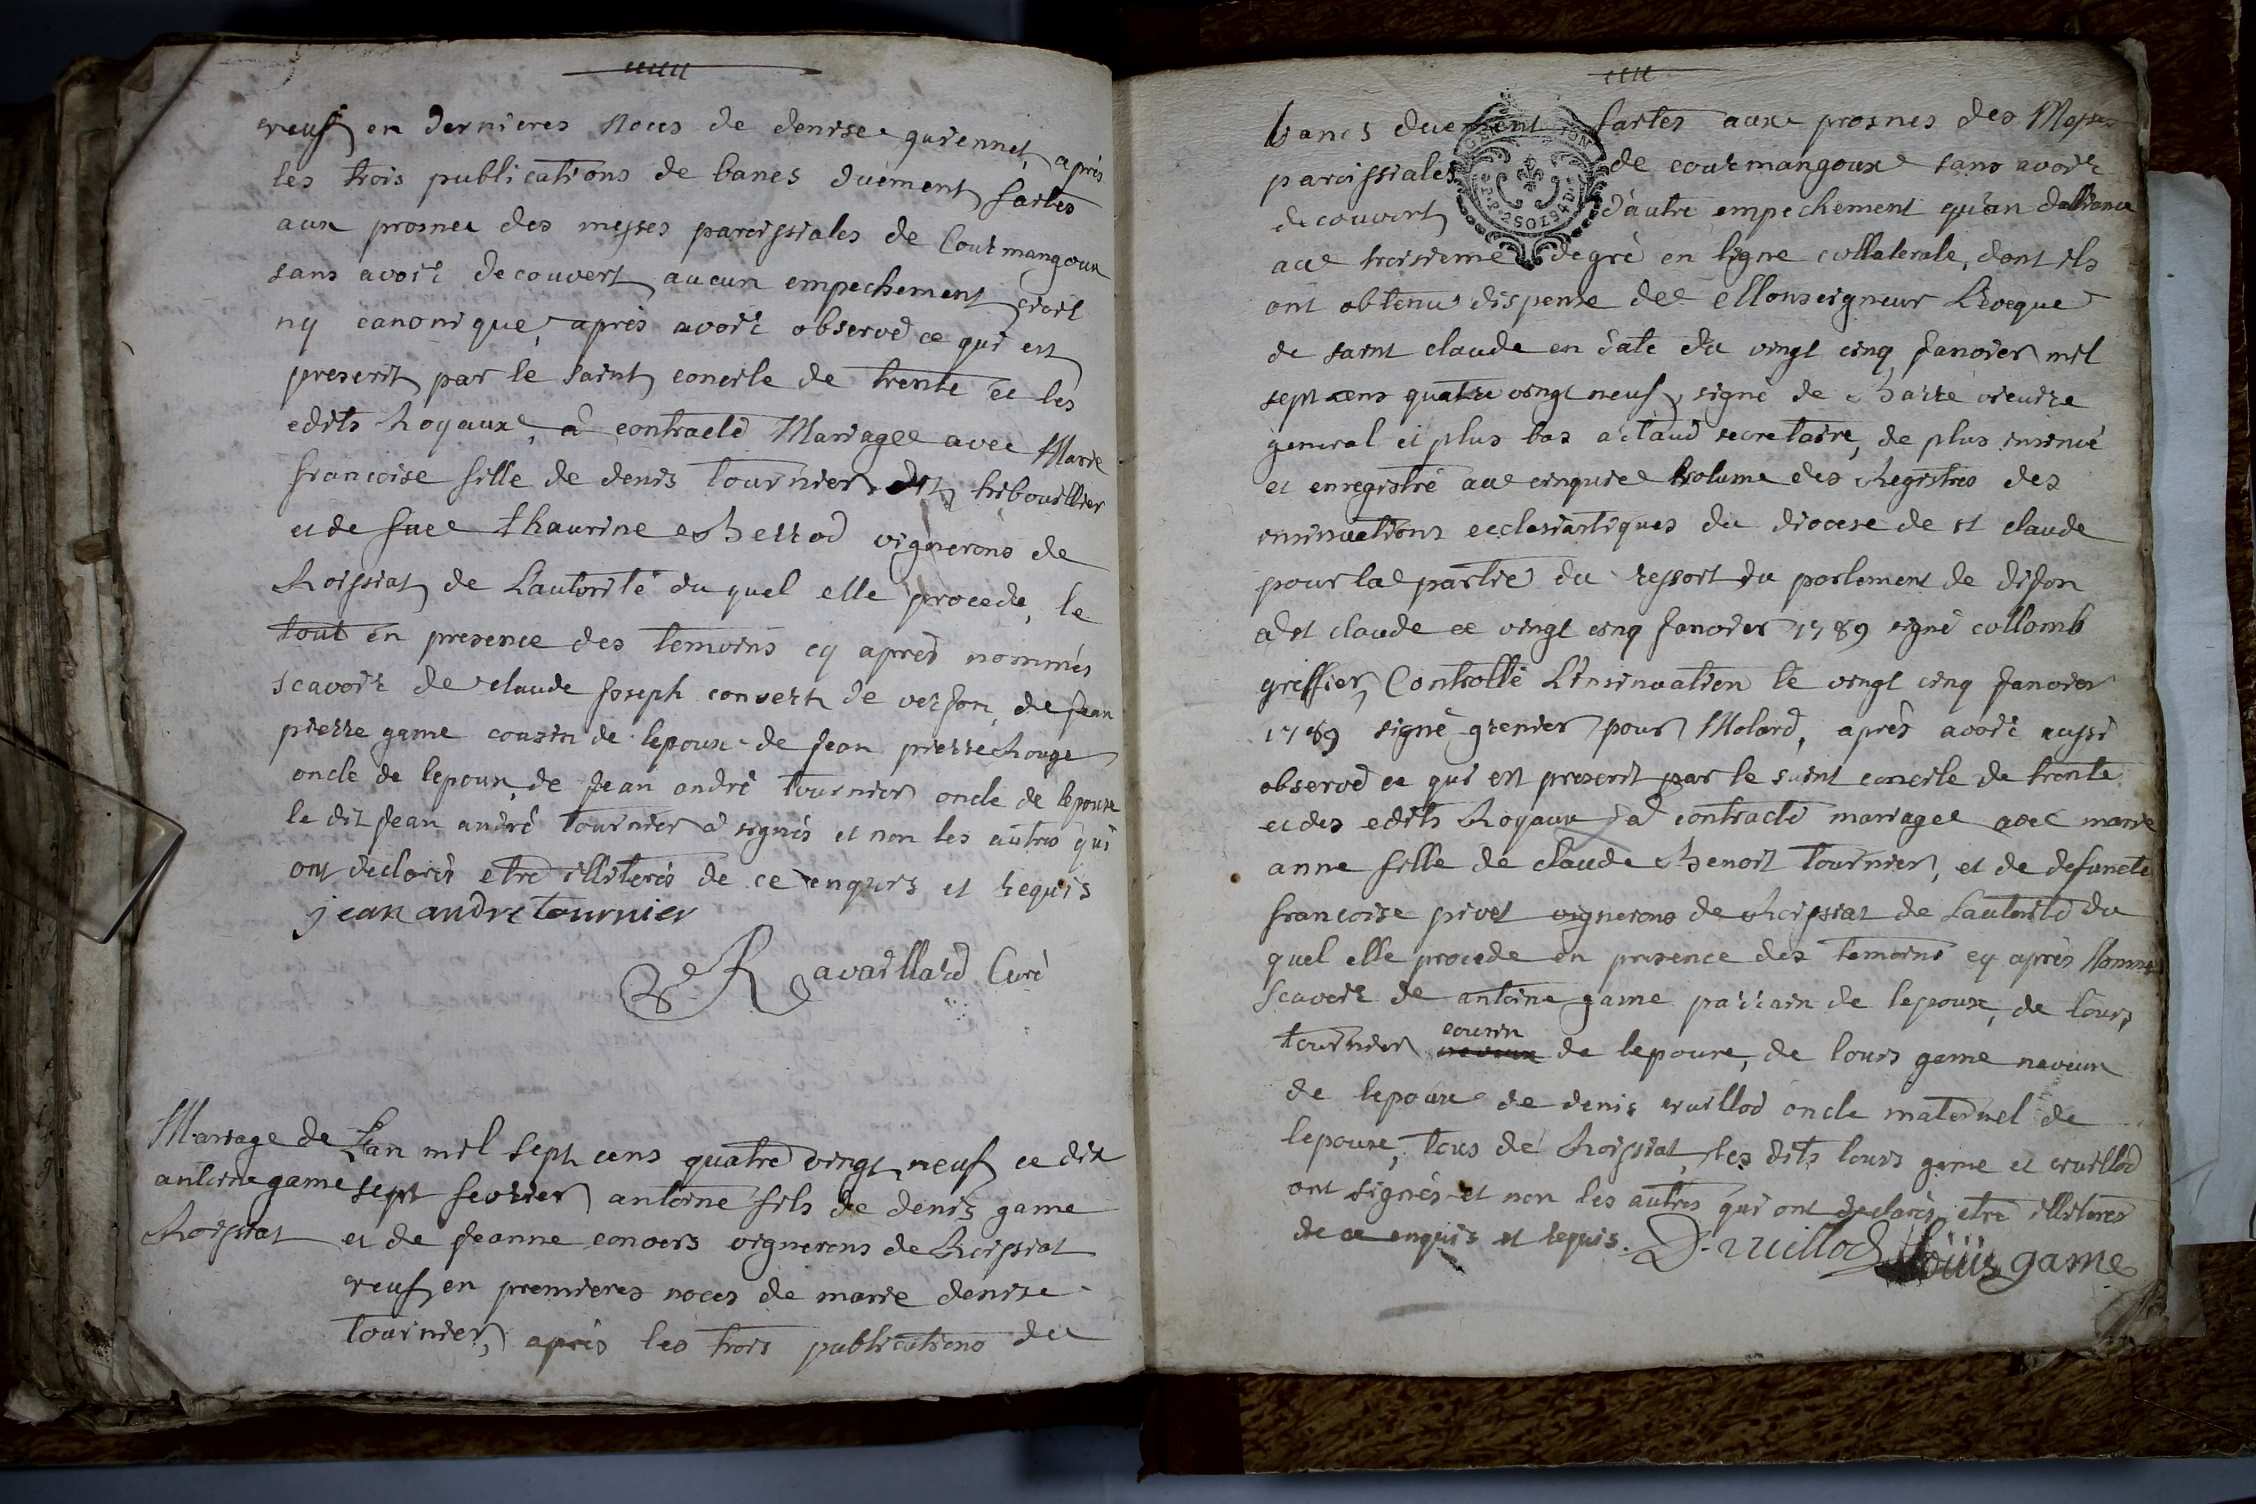 veuf en dernieres noces de denise guiennet, après
les trois publications de bancs duement faites
aux prosnes des messes paroissiales de Courmangoux
sans avoir decouvert aucun empechement civil
ny canonique, après avoir observé ce qui est
prescrit par le saint concile de trente et les
edits Royaux, à contracté Mariage avec Marie
francoise fille de denis tournier dit
et de fue vignerons de
Roissiat de L'autorité du quel elle procede, le
tout en presence des temoins cy après nommés
scavoir de claude joseph convert de verjon, de jean
pierre game cousin de lepoux de jean pierre Rouge
oncle de lepoux, de jean andré tournier oncle de lepouse
le dit jean andré tournier à signés et non les autres qui
ont declarés etre illiterés de ce enquis et requis
jean andre tournier
Ravaillard Curé
Mariage de
antoine game
Roissiat
L'an mil sept cens quatre vingt neuf ce dix
sept fevrier antoine fils de denis game
et de jeanne convers vignerons de Roissiat
veuf en premieres noces de marie denise
tournier, après les trois publications de
bancs duement faites aux prosnes des Messes
paroissiales de courmangoux sans avoir
decouvert d'autre empechement qu'un dalliance
au troisieme degré en ligne collaterale, dont ils
ont obtenu dispense de Monseigneur L'eveque
de saint claude en date du vingt cinq janvier mil
sept cens quatre vingt neuf, signé de vicaire
general et plus bas secretaire, de plus insinué
et enregistré au cinquiee volume des Registres des
insinuations ecclesiastiques du diocese de st claude
pour la partie du ressort du parlement de dijon
à st claude ce vingt cinq janvier 1789 signé collomb
greffier, Controllé L'insinuation le vingt cinq janvier
1789 signé grenier pour Molard, après avoir aussi
observé ce qui est prescrit par le saint concile de trente
et des edits Royaux à contracté mariage avec marie
anne fille de claude Benoit tournier, et de defuncte
francoise pivet vignerons de Roissiat de L'autorité du
quel elle procede en presence des temoins cy après Nommés
scavoir de antoine game parrain de lepoux, de louis
tournier cousin de lepouse, de louis game neveux
de lepoux de denis vuillod oncle maternel de
lepouse, tous de Roissiat, les dits louis game et vuillod
ont signés et non les autres qui ont declarés etre illiterés
de ce enquis et requis. D. vuillod louis game